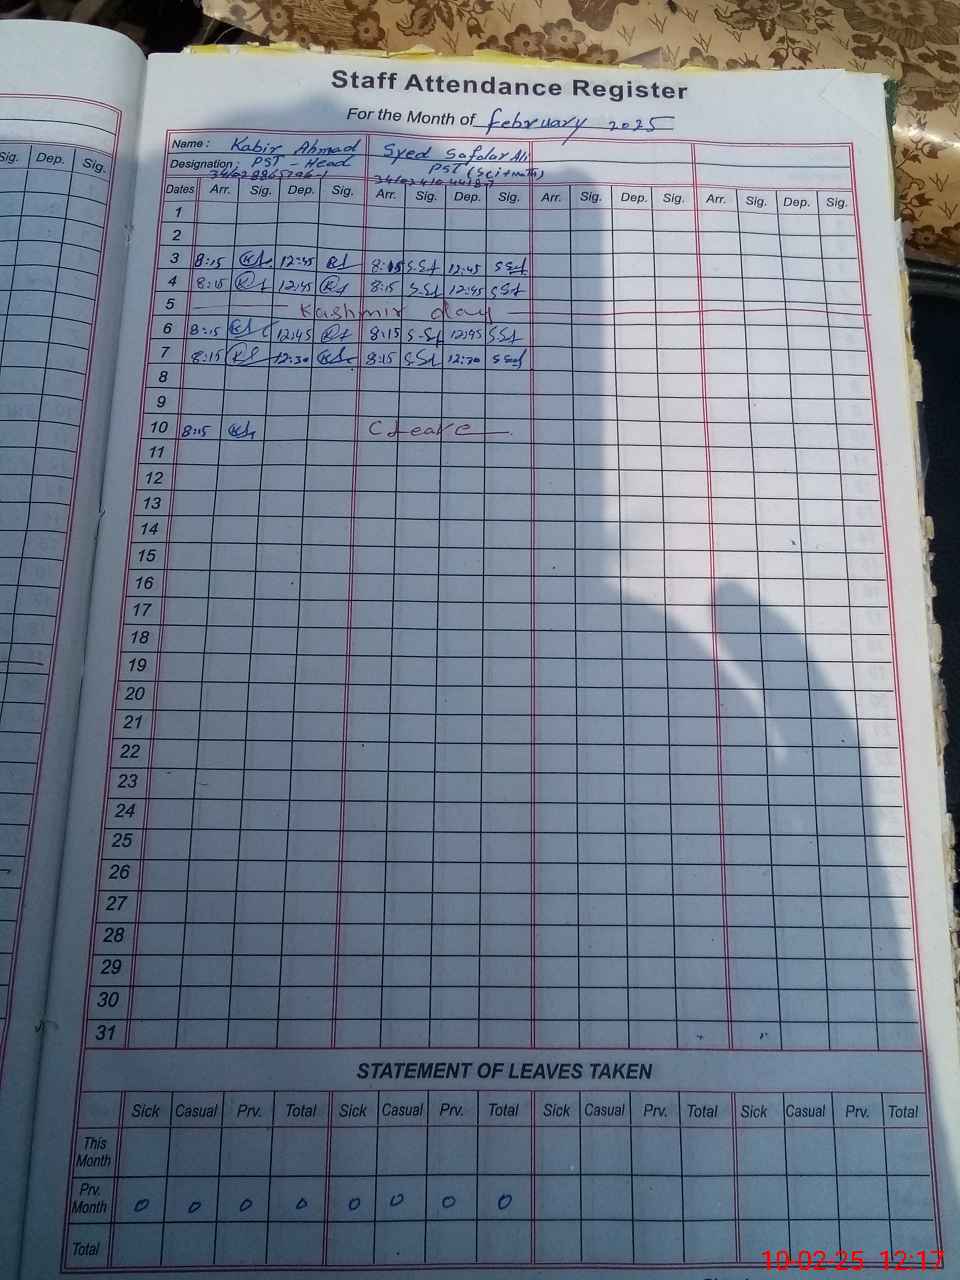 Staff Attendance Register
For the Month of February 2025
Name: Kabir Ahmad Syed Safdar Ali
Designation: PST - Head PST (Sci+math)
Sig. Dep. Sig.
Dates Arr. Sig. Dep. Sig. Arr. Sig. Dep. Sig. Arr. Sig. Dep. Sig. Arr. Sig. Dep. Sig.
1
2
3 8:15 12:45 8:15 SSA 12:45 SSA
4 8:15 12:45 8:15 SSA 12:45 SSA
5 Kashmir day
6 8:15 12:45 8:15 SSA 12:45 SSA
7 8:15 12:30 8:15 SSA 12:30 SSA
8
9
10 8:15 C Leave
11
12
13
14
15
16
17
18
19
20
21
22
23
24
25
26
27
28
29
30
31
STATEMENT OF LEAVES TAKEN
Sick Casual Prv. Total Sick Casual Prv. Total Sick Casual Prv. Total Sick Casual Prv. Total
This
Month
Prv.
Month 0 0 0 0 0 0 0 0
Total
10-02-25 12:17